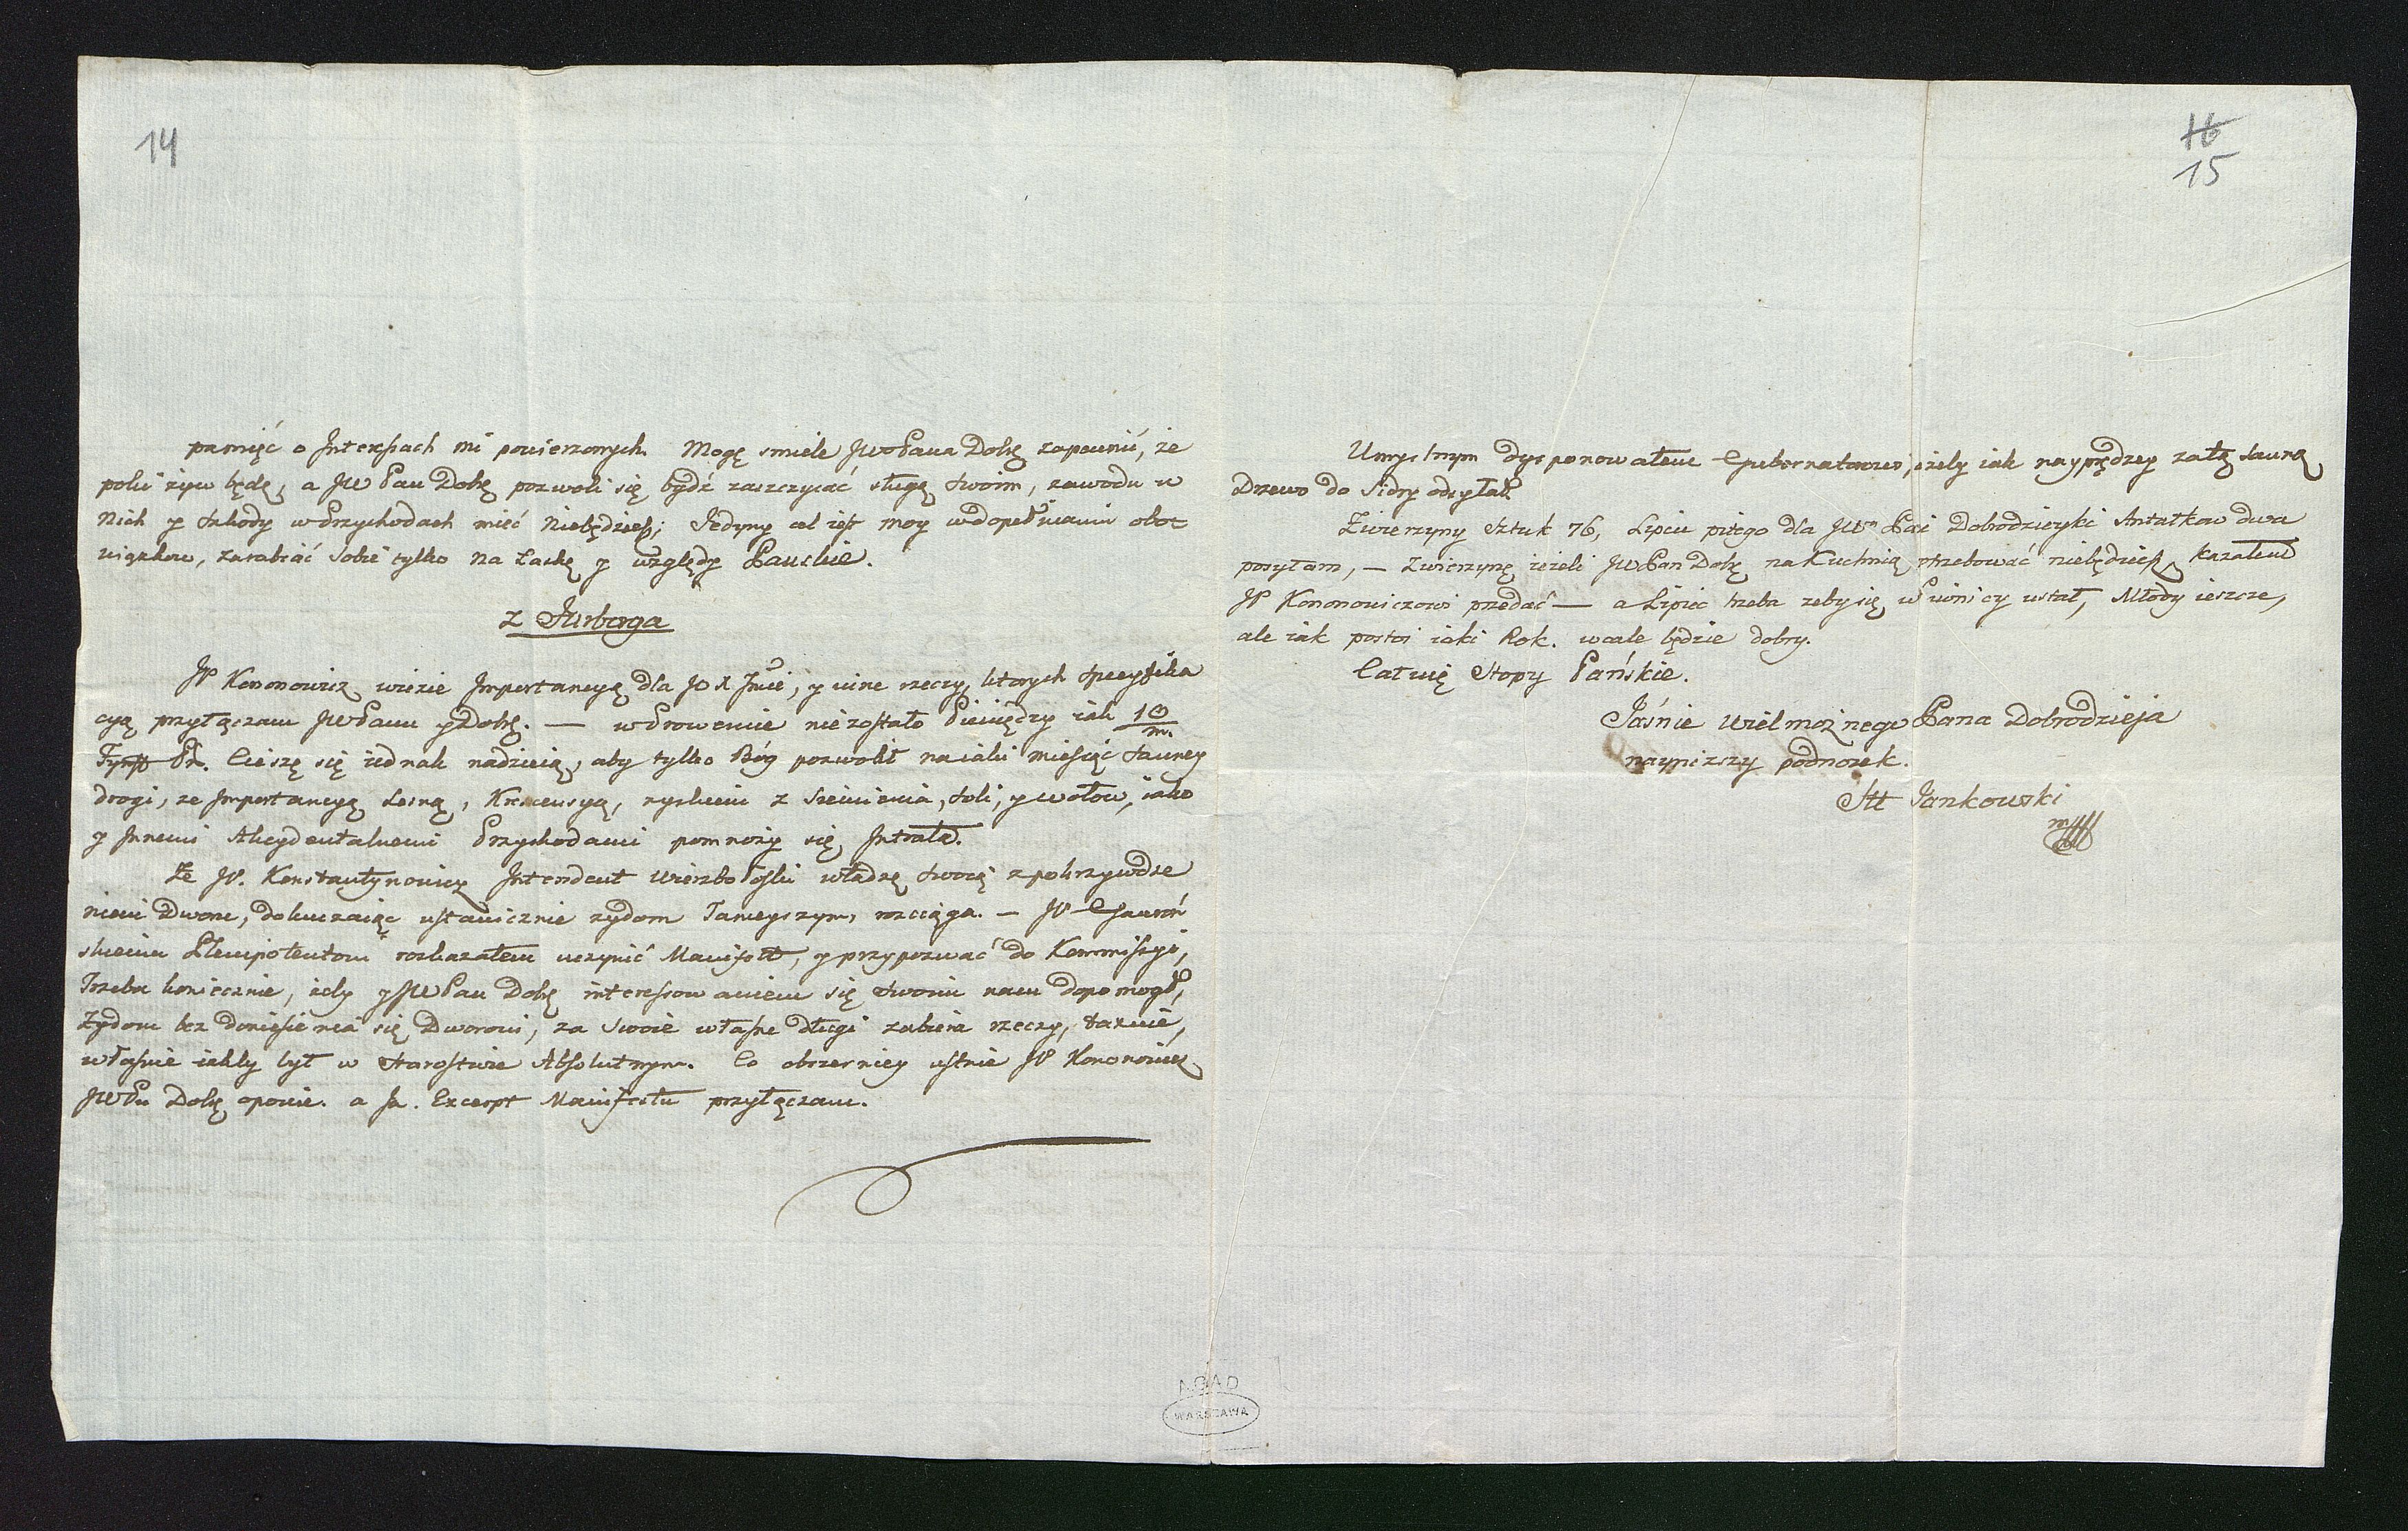 14
pamięć o Interessach mi powierzonych. Mogę smiele JWoPana Dobrę zapewnić, że
poki żyw będę, a JW Pan Dobrę pozwoli się bydź zaszczycać sługą swoim, zawodu w
nich y szkody w Przychodach mieć niebędziesz; Jedyny cel iest moy w dopełnianiu obo=
wiązkow, zarabiać sobie tylko na Łaskę y względy Pańskie.
z Jurborga
JP Kononowicz wiezie Importancyą dla JO X Jmci, y inne rzeczy, ktorych specyfika
cyą przyłączam JWPanu y Dobrę. — w Prowencie nie zostało Pieniędzy iak 10/m.
Tynff Pr. Cieszę się iednak nadzieią, aby tylko Bóg pozwolił na iaki miesiąc sanney
drogi, ze Importancyą Lesną, Krescensyą, zyskiem z Siemienia, soli, y wołow, iako
y Innemi Akcydentalnemi Przychodami pomnoży się Intrata.
Ze JP. Konstantynowicz Intendent Wierzbołoski władzę swoię z pokrzywdze
niem Dworu, dokuczaiąc ustawicznie zydom Tameyszym, rozciąga. — JP
skiemu Plenipotentowi rozkazałem uczynić Manifest, y przypozwać do Kommissyi,
Trzeba koniecznie, żeby y JWPan Dobrę interessowaniem się swoim nam dopomogł,
Zydom bez doniesienia się Dworowi, za swoie własne długi zabiera rzeczy,
własnie iekby był w Starostwie Absolutnym. Co obszerniey ustnie JP Kononowicz
JWPu Dobrę opowie. a Ja. Excerpt Manifestu przyłączam.
16
15
Umyslnym dysponowałem Gubernatorowi, żeby iak nayprędzey załą sanną
Drzewo do Sidry odsyłał.
Zwierzyny sztuk 76, Lipcu pitego dla JWn Pai Dobrodzieyki Antałkow dwa
posyłam, — Zwierzynę ieżeli JWPan Dobrę na Kuchnią potrzebować niebędziesz, kazałem
JP Kononowiczowi przedać — a Lipiec trzeba zeby się w Piwnicy ustał, Młody ieszcze,
ale iak postoi iaki Rok. wcale będzie dobry.
Całuię Stopy Pańskie.
Jaśnie Wielmożnego Pana Dobrodzieja
nayniższy podnożek.
Jankowski
AGAD
WARSZAWA